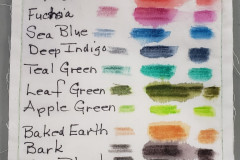 Fuchsia
Sea Blue
Deep Indigo
Teal Green
Leaf Green
Apple Green
Baked Earth
Bark